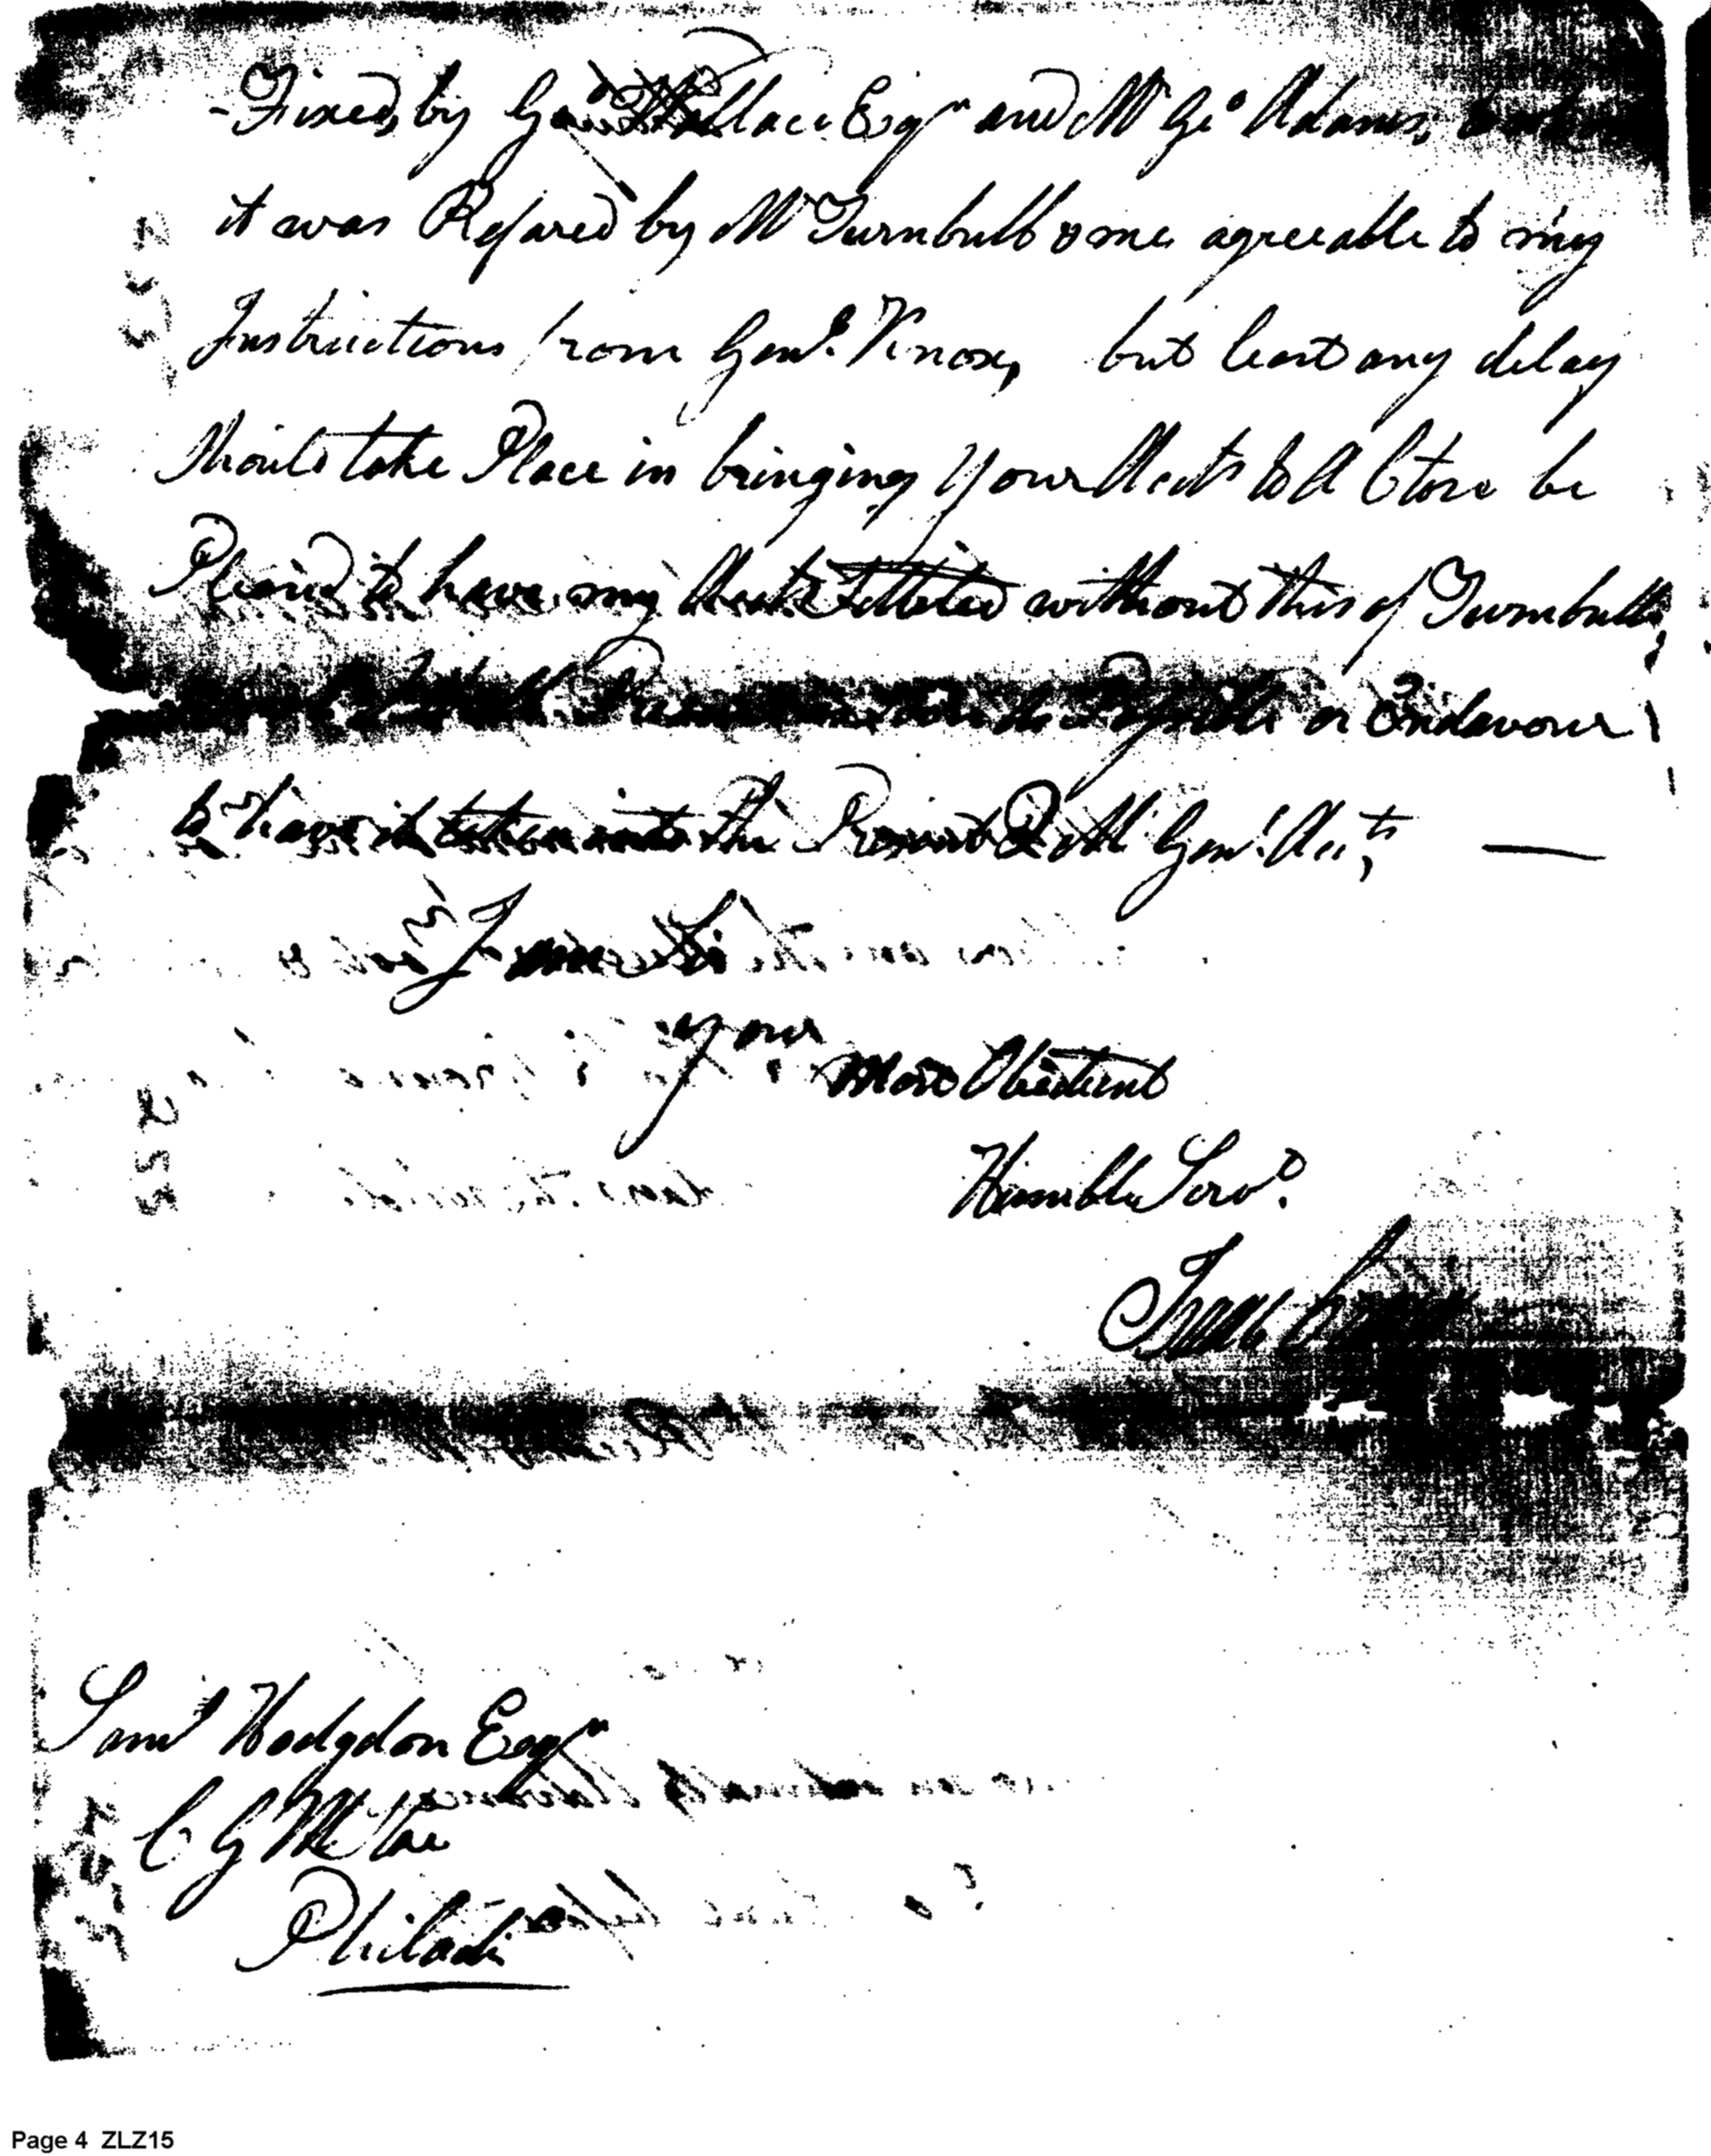 Fixed, by Geo Wallace Esqr and Mr Geo Adams,
it was Refared by Mr Turnbull & me agreeable to my
Instructions from Genl. Knox, but least any delay
Should take Place in bringing your Accts to A Close be
Pleasd to have my Accts Settled without this of Turnbulls,
Payable or Endavour
to have it taken into the Present QrMr Genl. Accts,
I am Sir
your
most Obedient
Humble Servt.
Isaac
Saml Hodgdon Esqr
C G M Stor
Philada
Page 4 ZLZ15